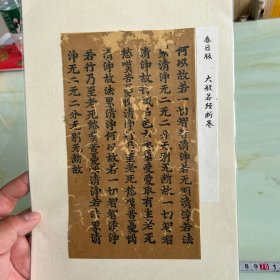 春日版 大般若经断卷
何以故若一切智智清淨若无明清淨若法
界清淨无二无二分无別无斷故一切智智
清淨故行識名色六處觸受愛取有生老死
愁歎苦憂惱清淨行乃至老死愁歎苦憂惱
清淨故法界清淨何以故若一切智智清淨
若行乃至老死愁歎苦憂惱清淨若法界清
淨无二无二分无別无斷故